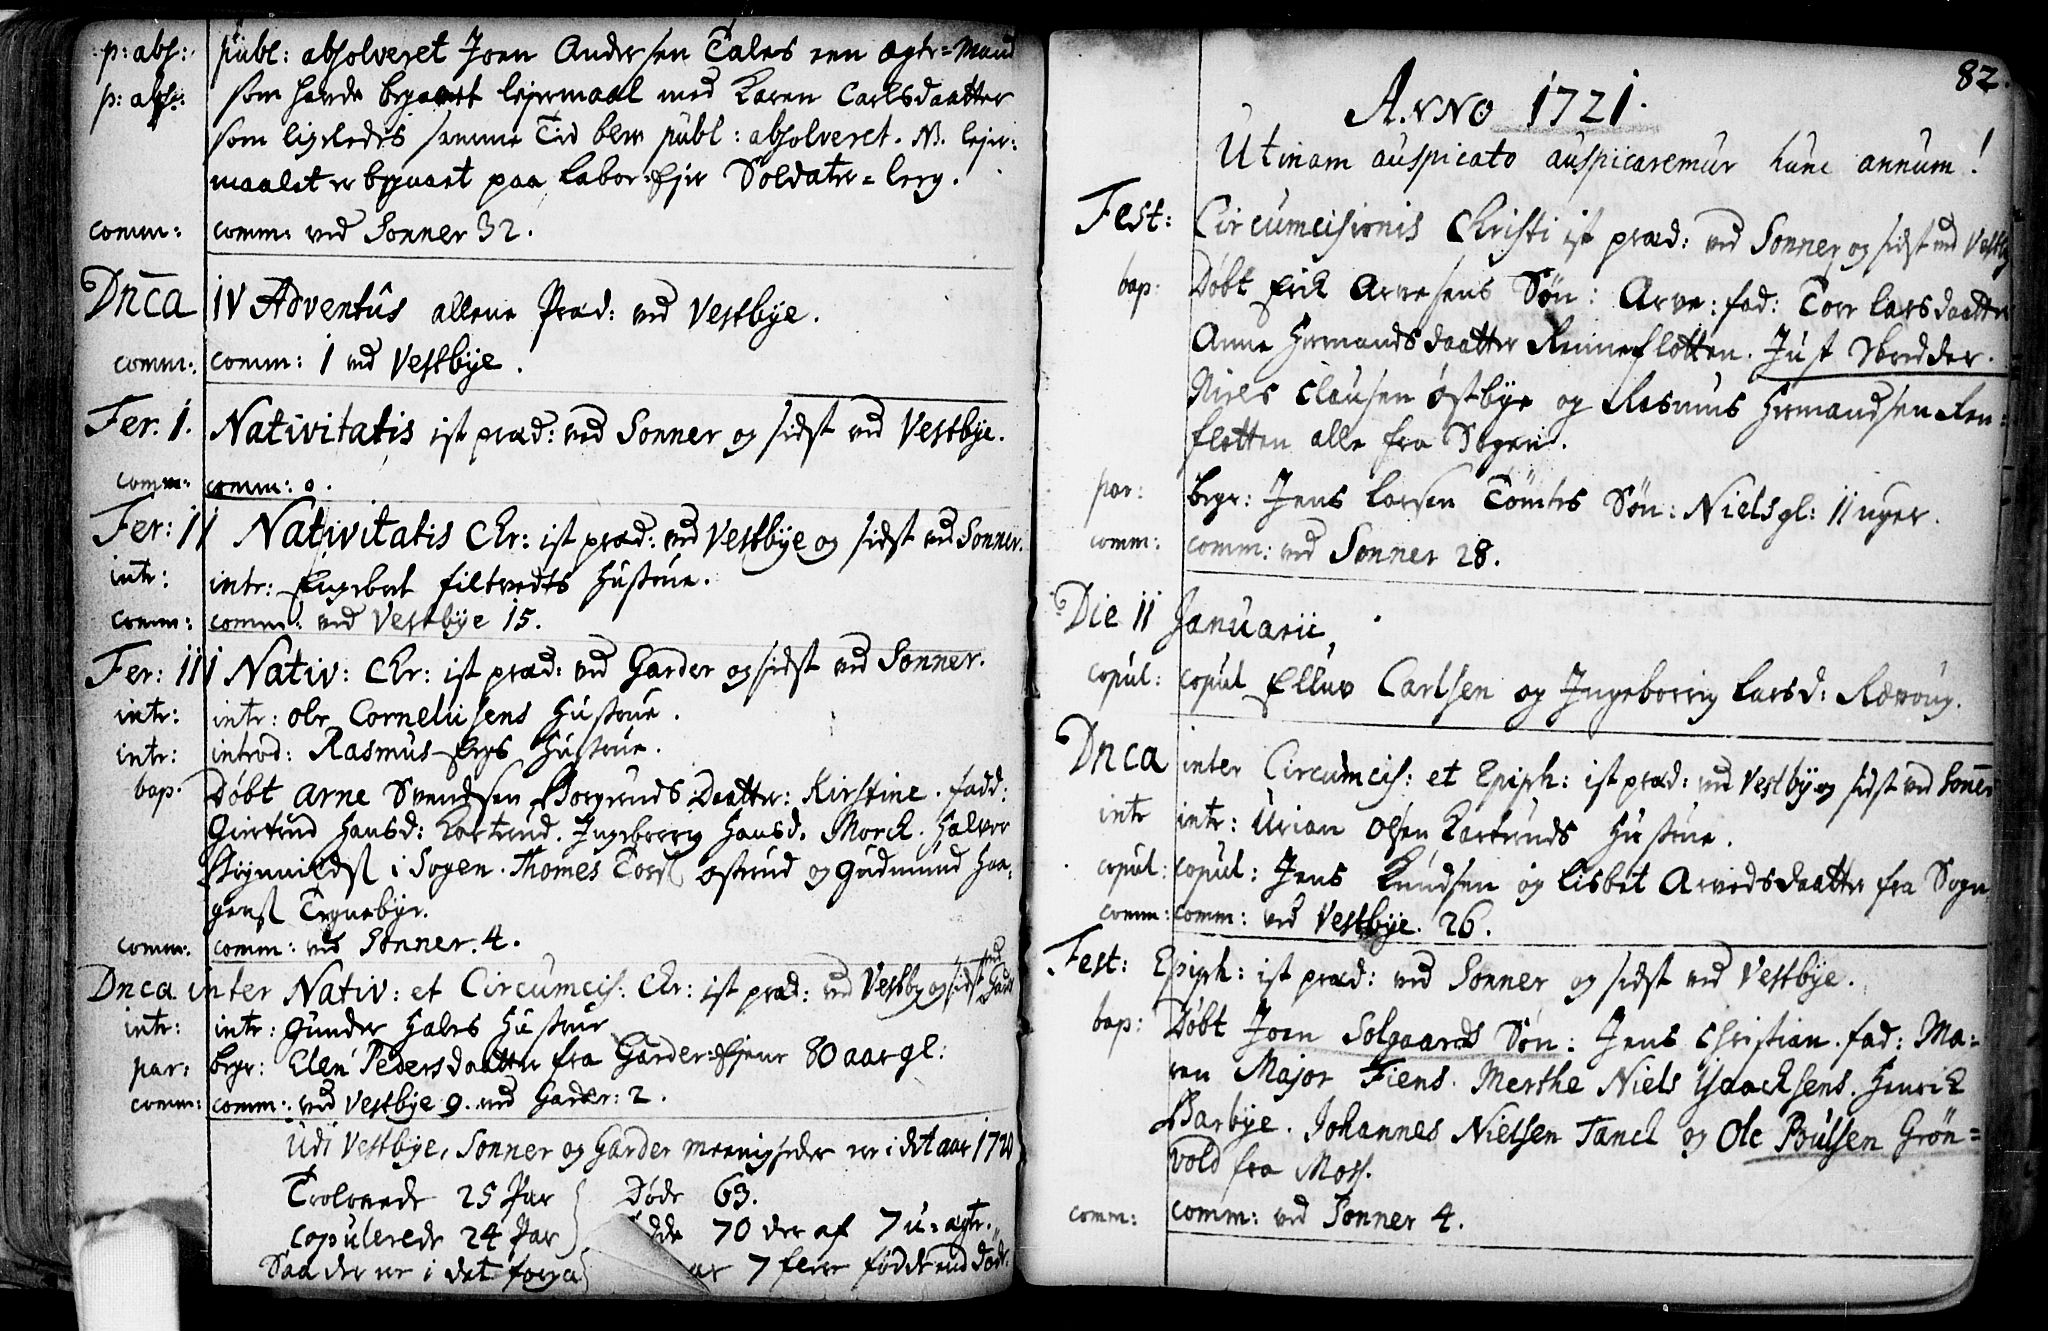 p: abs: publ: absolveret Joen Andersen Tales een ægte-Mand
p: abs: som hafde begaaet lejermaal med Karen Carlsdaatter
som ligeledis samme Tid blev publ: absolveret. NB. lejer-
maalet er begaaet paa Labor Ejer Soldater-leeg.
comm: comm: ved Sonner 32.
Dnca IV Adventûs allene Præd: ved Vestbÿe.
comm: comm: 1 ved Vestbÿe.
Fer. 1. Nativitatis ist præd: ved Sonner og sidst ved Vestbÿe.
comm: comm: 0.
Fer: II Nativitatis Chr: ist præd: ved Vestbÿe og sidst ved Sonner.
intr: intr: Engebret filtvedts Hustrue.
comm: comm: ved Vestbÿe 15.
Fer: III Nativ: Chr: ist præd: ved Garder og sidst ved Sonner.
intr: intr: ole Corneliisens Hustrue.
intr: introd: Rasmus Hustrue.
bap. Døbt Arne Svendsen Borgeruds Daatter: Kirstine. fadd:
Giertrud Hansd: Kortrud. Ingeborrig Hansd. Morck. Halvor
i Sogen. Thomes Tors ostrud og Gudmund Haa-
gens Tegnebÿe.
comm: comm: ved Sonner. 4.
Dnca inter Nativ: et Circumcis: Chr: ist præd: ved Vestby og sidst ved Gard
intr: intr: Gunder Hales Hustrue
par: begr: Elen Pedersdaatter fra Garder-Ejene 80 aar gl:
comm: comm: ved Vestbÿe 9. ved Garder: 2.
Udi Vestbÿe, Sonner og Garder meenigheder er i det aar 1720
Trolovede 25 Par Døde 63.
Copulerede 24 Par 70 der af 7 u-ægte.
Saa der er i det 7 flere fødde end Døde.
82.
Anno 1721.
Utinam auspicato auspicaremur hunc annum!
Fest: Circumcisionis Christi ist præd: ved Sonner og sidst ved Vestby
bap: Døbt Erik Arvesens Søn: Arve: fad: Torr Larsdaatter
Anne Hermandsdaatter Renneflotten. Just Skredder.
Niels Clausen Østbÿe og Rasmus Hermandsen Ren-
flotten alle fra Sogned.
par: begr: Jens Larsen Tømtes Søn: Niels gl: 11 uger.
comm: comm: ved Sonner 28.
Die 11 Januarii
copul: copul Elluv Carlsen og Ingeborrig Larsd: Ræroug.
Dnca inter Circumcis: et Epiph: ist præd: ved Vestbÿ og sidst ved Soner
intr intr: Urian Olsen Kortruds Hustrue.
copul: copul: Jens Knudsen og Lisbet Arvedsdaatter fra Sogn
comm: comm: ved Vestbÿe. 26.
Fest: Epiph: ist præd: ved Sonner og sidst ved Vestbÿe.
bap: Døbt Joen Solgaards Søn: Jens Christian. fad: Ma-
ren Major Fiens. Merthe Niels Ysaachsens. Henrik
Barbye. Johannes Nielsen Tanck og Ole Poulsen Grøn-
vold fra Moss.
comm: comm: ved Sonner 4.